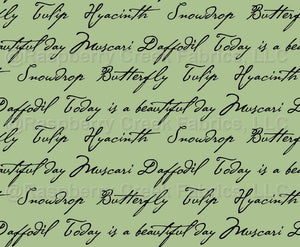 fly Tulip Hyacinth Snowdrop Butterfly
eautiful day Muscari Daffodil Today is a bea
Snowdrop Butterfly Tulip Hyacinth
Daffodil Today is a beautiful day Muscari D
fly Tulip Hyacinth Snowdrop Butterfly
© Raspberry Creek Fabrics, LLC
eautiful day Muscari Daffodil Today is a bea
Snowdrop Butterfly Tulip Hyacinth
Daffodil Today is a beautiful day Muscari D